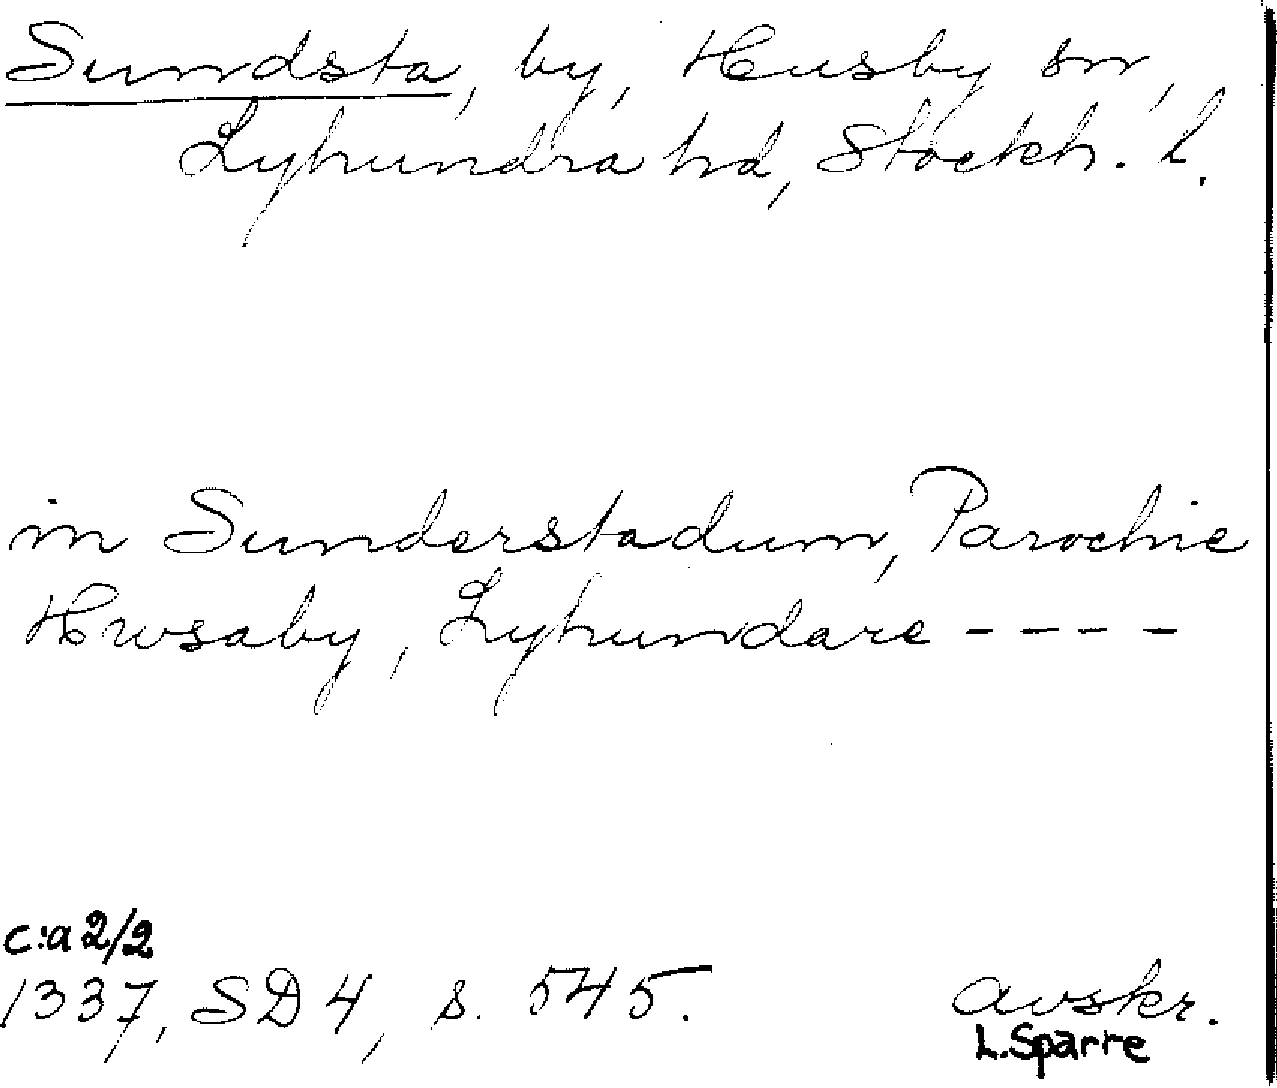 Sundsta, by, Husby sn,
Lyhundra hd, Stockh. l.
in Sunderstadum, Parochie
Hwsaby, Lyhundare ----
c:a 2/2
1337, SD 4, s. 545. avskr.
L. Sparre